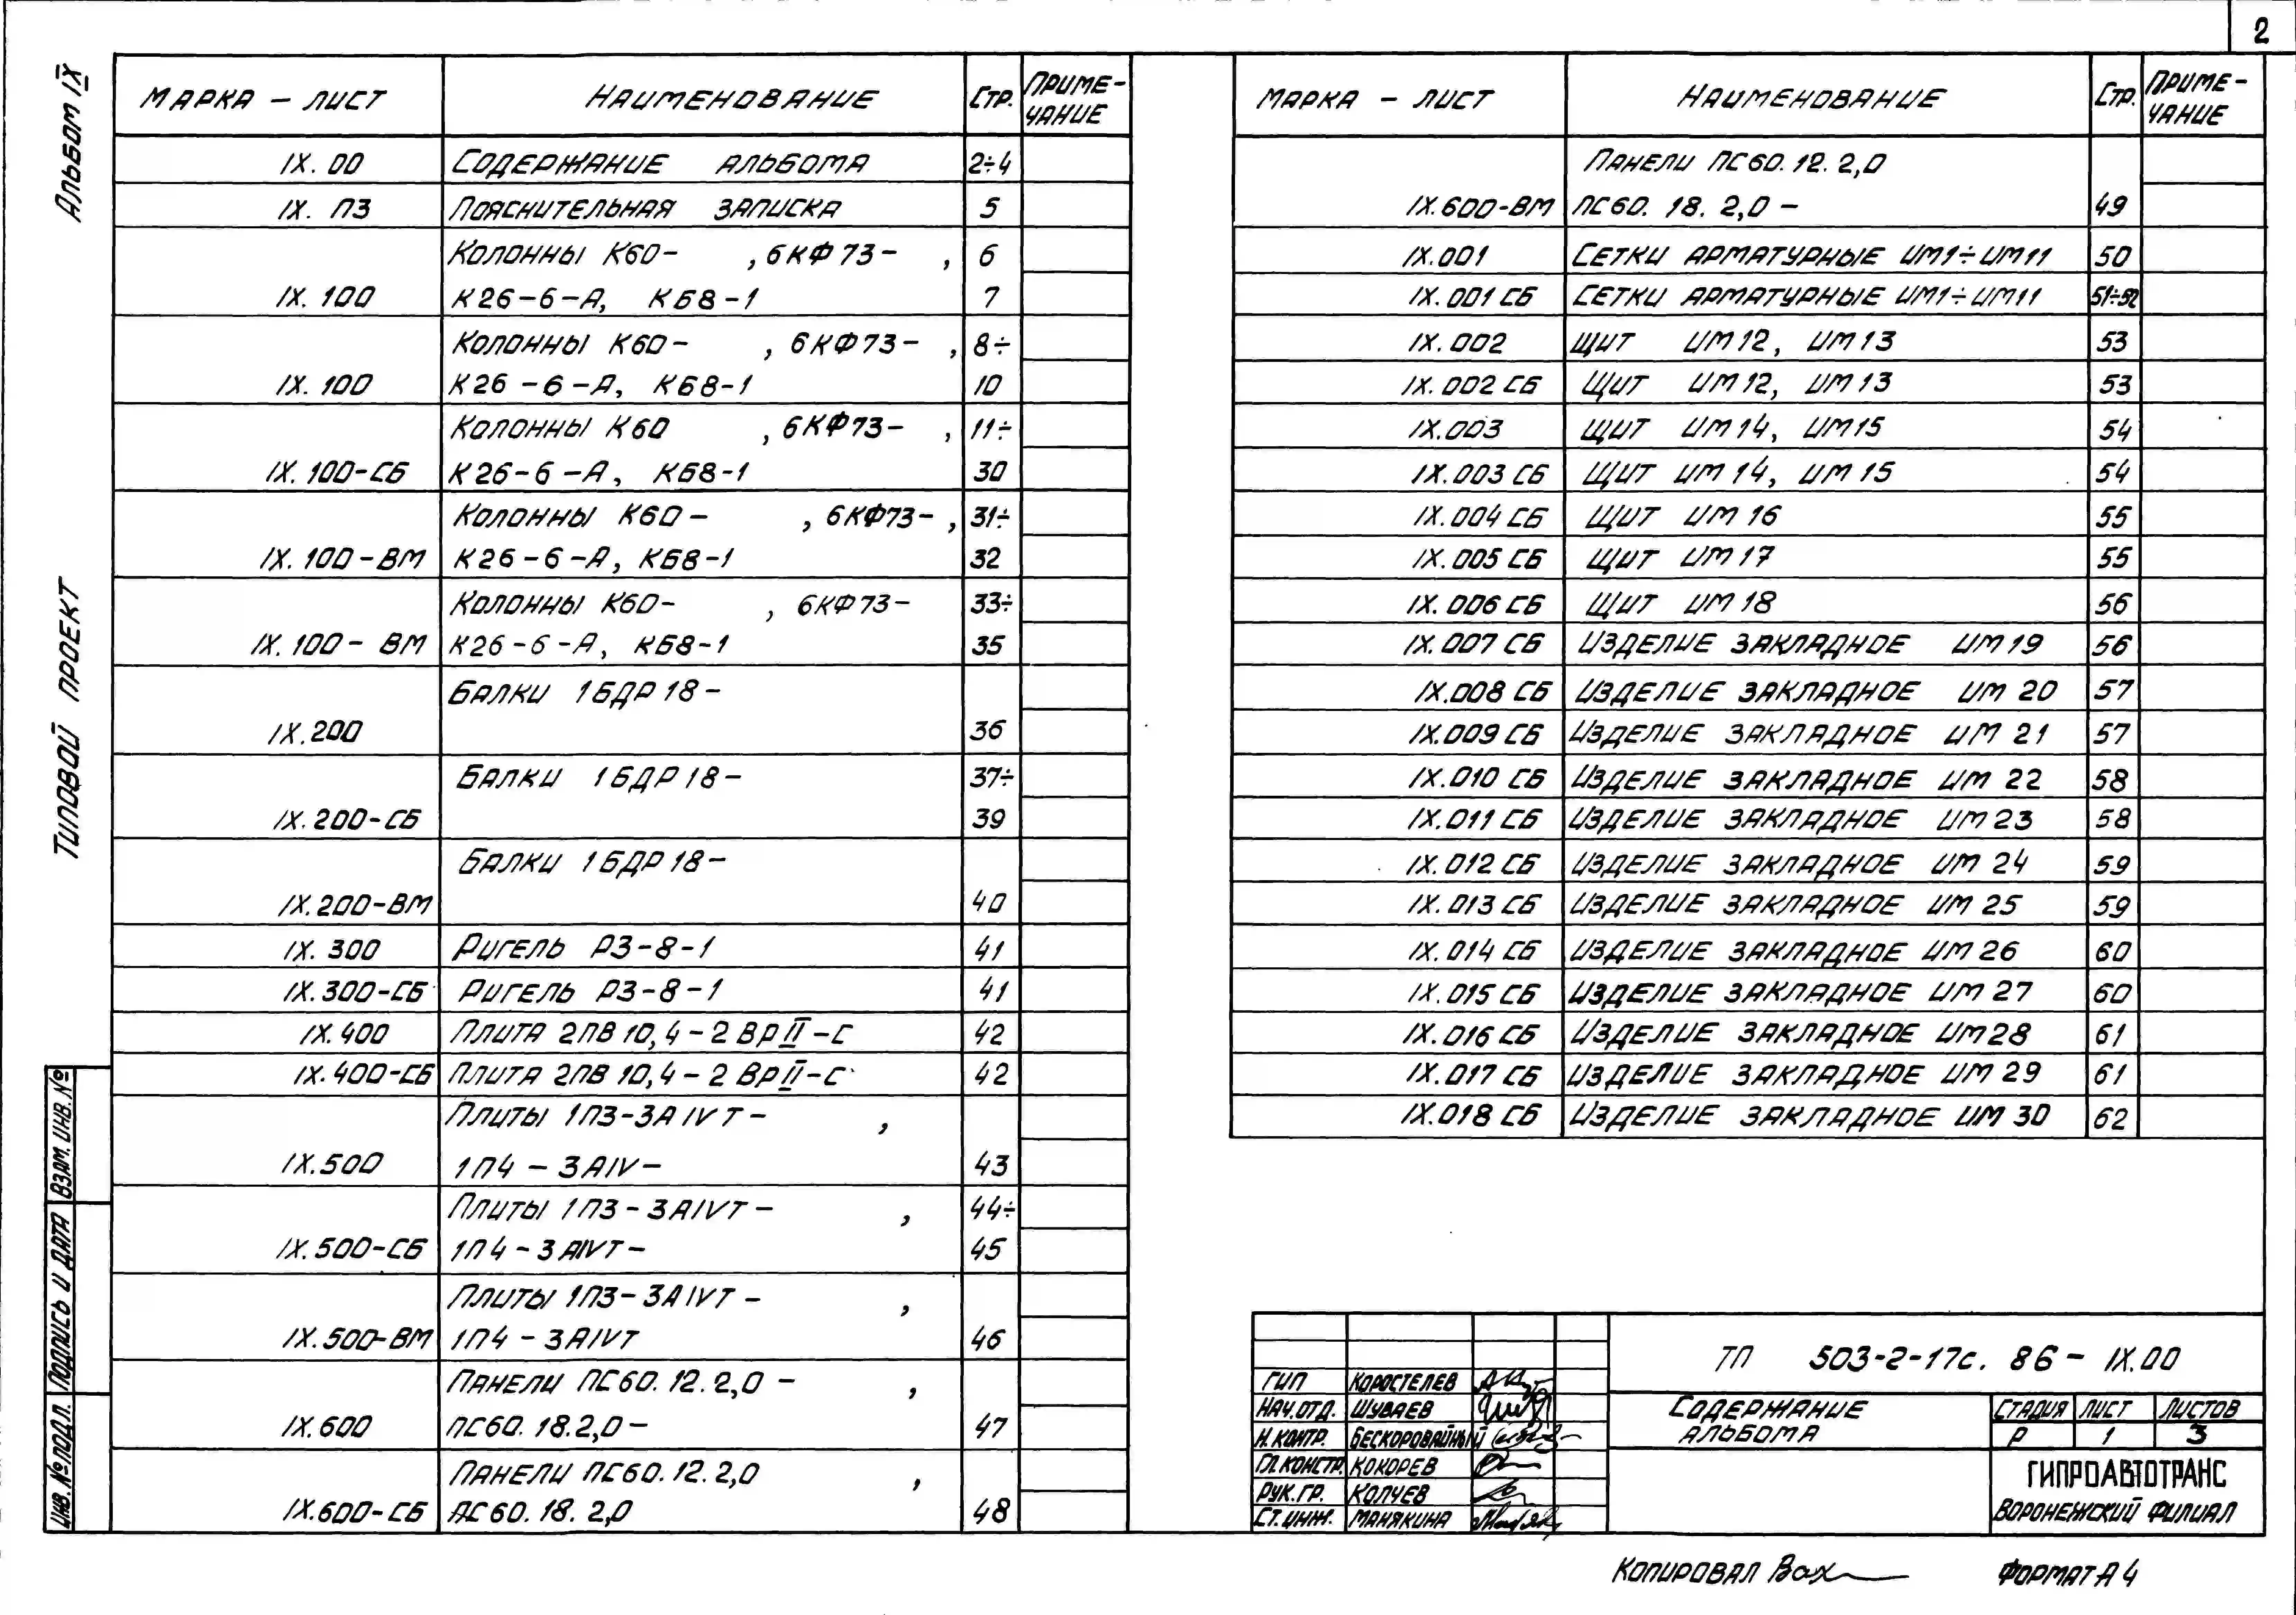 2
Альбом IX
Типовой проект
Взам. инв. №
Подпись и дата
Инв. № подл.
Марка - лист Наименование Стр. Приме-
чание
IX. 00 Содержание альбома 2÷4
IX. ПЗ Пояснительная записка 5
Колонны К60- , 6КФ73- , 6
IX. 100 К26-6-А, КБ8-1 7
Колонны К60- , 6КФ73- , 8÷
IX. 100 К26-6-А, КБ8-1 10
Колонны К60 , 6КФ73- , 11÷
IX. 100-СБ К26-6-А, КБ8-1 30
Колонны К60- , 6КФ73- , 31÷
IX. 100-ВМ К26-6-А, КБ8-1 32
Колонны К60- , 6КФ73- 33÷
IX. 100-ВМ К26-6-А, КБ8-1 35
Балки 1БДР18-
IX. 200 36
Балки 1БДР18- 37÷
IX. 200-СБ 39
Балки 1БДР18-
IX. 200-ВМ 40
IX. 300 Ригель Р3-8-1 41
IX. 300-СБ Ригель Р3-8-1 41
IX. 400 Плита 2ПВ10,4-2ВрII-С 42
IX. 400-СБ Плита 2ПВ10,4-2ВрII-С 42
Плиты 1П3-3АIVТ- ,
IX. 500 1П4-3АIV- 43
Плиты 1П3-3АIVТ- , 44÷
IX. 500-СБ 1П4-3АIVТ- 45
Плиты 1П3-3АIVТ- ,
IX. 500-ВМ 1П4-3АIVТ 46
Панели ПС60.12.2,0- ,
IX. 600 ПС60.18.2,0- 47
Панели ПС60.12.2,0 ,
IX. 600-СБ ПС60.18.2,0 48
Марка - лист Наименование Стр. Приме-
чание
Панели ПС60.12.2,0
IX. 600-ВМ ПС60.18.2,0- 49
IX. 001 Сетки арматурные ИМ1÷ИМ11 50
IX. 001 СБ Сетки арматурные ИМ1÷ИМ11 51÷52
IX. 002 Щит ИМ12, ИМ13 53
IX. 002 СБ Щит ИМ12, ИМ13 53
IX. 003 Щит ИМ14, ИМ15 54
IX. 003 СБ Щит ИМ14, ИМ15 54
IX. 004 СБ Щит ИМ16 55
IX. 005 СБ Щит ИМ17 55
IX. 006 СБ Щит ИМ18 56
IX. 007 СБ Изделие закладное ИМ19 56
IX. 008 СБ Изделие закладное ИМ20 57
IX. 009 СБ Изделие закладное ИМ21 57
IX. 010 СБ Изделие закладное ИМ22 58
IX. 011 СБ Изделие закладное ИМ23 58
IX. 012 СБ Изделие закладное ИМ24 59
IX. 013 СБ Изделие закладное ИМ25 59
IX. 014 СБ Изделие закладное ИМ26 60
IX. 015 СБ Изделие закладное ИМ27 60
IX. 016 СБ Изделие закладное ИМ28 61
IX. 017 СБ Изделие закладное ИМ29 61
IX. 018 СБ Изделие закладное ИМ30 62
ТП 503-2-17с.86-IX.00
ГИП Коростелев
Нач.отд. Шуваев
Н.контр. Бескоровайный
Гл.констр. Кокорев
Рук.гр. Колчев
Ст.инж. Манякина
Содержание
альбома
Стадия Лист Листов
Р 1 3
ГИПРОАВТОТРАНС
Воронежский филиал
Копировал Вах
Формат А4